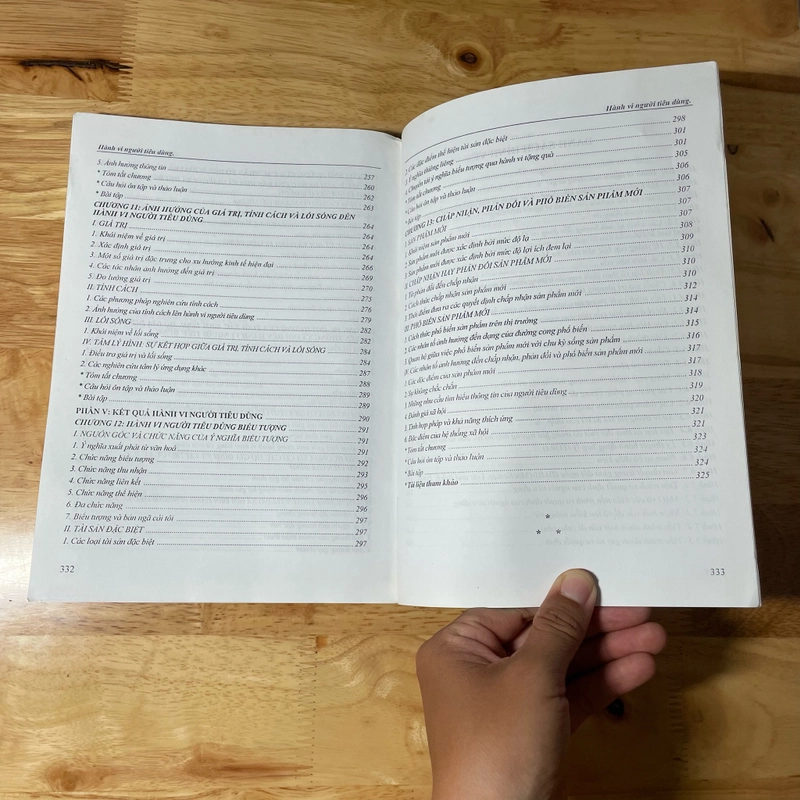 Hành vi người tiêu dùng.
5. Ảnh hưởng thông tin ... 257
* Tóm tắt chương ... 260
* Câu hỏi ôn tập và thảo luận ... 262
* Bài tập ... 263
CHƯƠNG 11: ẢNH HƯỞNG CỦA GIÁ TRỊ, TÍNH CÁCH VÀ LỐI SỐNG ĐẾN
HÀNH VI NGƯỜI TIÊU DÙNG ... 264
I. GIÁ TRỊ ... 264
1. Khái niệm về giá trị ... 264
2. Xác định giá trị ... 264
3. Một số giá trị đặc trưng cho xu hướng kinh tế hiện đại ... 266
4. Các tác nhân ảnh hưởng đến giá trị ... 269
5. Đo lường giá trị ... 270
II. TÍNH CÁCH ... 275
1. Các phương pháp nghiên cứu tính cách ... 276
2. Ảnh hưởng của tính cách lên hành vi người tiêu dùng ... 279
III. LỐI SỐNG ... 282
1. Khái niệm về lối sống ... 282
IV. TÂM LÝ HÌNH: SỰ KẾT HỢP GIỮA GIÁ TRỊ, TÍNH CÁCH VÀ LỐI SỐNG ... 284
1. Điều tra giá trị và lối sống ... 284
2. Các nghiên cứu tâm lý ứng dụng khác ... 287
* Tóm tắt chương ... 288
* Câu hỏi ôn tập và thảo luận ... 289
* Bài tập ... 289
PHẦN V: KẾT QUẢ HÀNH VI NGƯỜI TIÊU DÙNG ... 290
CHƯƠNG 12: HÀNH VI NGƯỜI TIÊU DÙNG BIỂU TƯỢNG ... 291
I. NGUỒN GỐC VÀ CHỨC NĂNG CỦA Ý NGHĨA BIỂU TƯỢNG ... 291
1. Ý nghĩa xuất phát từ văn hoá ... 291
2. Chức năng biểu tượng ... 292
3. Chức năng thu nhận ... 293
4. Chức năng liên kết ... 295
5. Chức năng thể hiện ... 296
6. Đa chức năng ... 296
7. Biểu tượng và bản ngã cái tôi ... 297
II. TÀI SẢN ĐẶC BIỆT ... 297
1. Các loại tài sản đặc biệt ... 297
332
Hành vi người tiêu dùng.
2. Các đặc điểm thể hiện tài sản đặc biệt ... 298
3. Ý nghĩa thiêng liêng ... 301
4. Chuyển tải ý nghĩa biểu tượng qua hành vi tặng quà ... 301
* Tóm tắt chương ... 305
* Câu hỏi ôn tập và thảo luận ... 306
* Bài tập ... 306
CHƯƠNG 13: CHẤP NHẬN, PHẢN ĐỐI VÀ PHỔ BIẾN SẢN PHẨM MỚI ... 307
I. SẢN PHẨM MỚI ... 307
1. Khái niệm sản phẩm mới ... 307
2. Sản phẩm mới được xác định bởi mức độ lạ ... 308
3. Sản phẩm mới được xác định bởi mức độ lợi ích đem lại ... 309
II. CHẤP NHẬN HAY PHẢN ĐỐI SẢN PHẨM MỚI ... 310
1. Từ phản đối đến chấp nhận ... 310
2. Cách thức chấp nhận sản phẩm mới ... 310
3. Thời điểm đưa ra các quyết định chấp nhận sản phẩm mới ... 312
III. PHỔ BIẾN SẢN PHẨM MỚI ... 314
1. Cách thức phổ biến sản phẩm trên thị trường ... 314
2. Các nhân tố ảnh hưởng đến dạng của đường cong phổ biến ... 315
3. Quan hệ giữa việc phổ biến sản phẩm mới với chu kỳ sống sản phẩm ... 316
IV. Các nhân tố ảnh hưởng đến chấp nhận, phản đối và phổ biến sản phẩm mới ... 317
1. Các đặc điểm của sản phẩm mới ... 318
2. Sự không chắc chắn ... 318
3. Những nhu cầu tìm hiểu thông tin của người tiêu dùng ... 319
4. Đánh giá xã hội ... 320
5. Tính hợp pháp và khả năng thích ứng ... 321
6. Đặc điểm của hệ thống xã hội ... 321
* Tóm tắt chương ... 323
* Câu hỏi ôn tập và thảo luận ... 324
* Bài tập ... 324
* Tài liệu tham khảo ... 325
*
* *
333